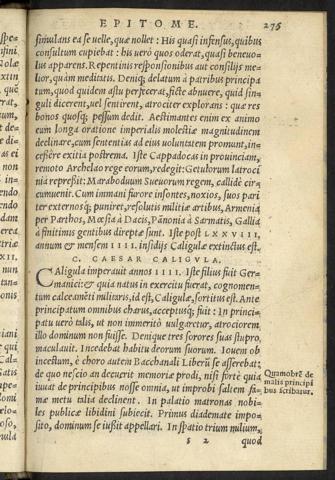 EPITOME. 275
simulans ea se velle, quæ nollet: His quasi infensus, quibus
consultum cupiebat: his uerò quos oderat, quasi beneuo-
lus apparens. Repentinis responsionibus aut consilijs me-
lior, quàm meditatis. Deniq; delatum à patribus principa
tum, quod quidem astu perfecerat, ficte abnuere, quid sin-
guli dicerent, uel sentirent, atrociter explorans: quæ res
bonos quosq; pessum dedit. Aestimantes enim ex animo
eum longa oratione imperialis molestiæ magnitudinem
declinare, cum sententias ad eius uoluntatem promunt, in-
cesiêre exitia postrema. Iste Cappadocas in prouinciam,
remoto Archelao rege eorum, redegit: Getulorum latroci
nia repressit: Maraboduum Sueuorum regem, callidè cir-
cumuenit. Cum immani furore insontes, noxios, suos pari
ter externosq; puniret, resolutis militiæ artibus, Armenia
per Parthos, Mœsia à Dacis, Panonia à Sarmatis, Gallia
à finitimis gentibus direptæ sunt. Iste post LXXVIII.
annum & mensem IIII. insidijs Caligulæ extinctus est.
C. CAESAR CALIGVLA.
CAligula imperauit annos IIII. Iste filius fuit Ger-
manici: & quia natus in exercitu fuerat, cognomen-
tum calceamēti militaris, id est, Caligulæ, sortitus est. Ante
principatum omnibus charus, acceptusq; fuit: In princi-
patu uerò talis, ut non immeritò uulgaretur, atrociorem
illo dominum non fuisse. Denique tres sorores suas stupro
maculauit. Incedebat habitu deorum suorum. Iouem ob
incestum, è choro autem Bacchanali Liberū se asserebat:
de quo nescio an deceuerit memoriæ prodi, nisi fortè quia
iuuat de principibus nosse omnia, ut improbi saltem fa-
mæ metu talia declinent. In palatio matronas nobi-
les publicæ libidini subiecit. Primus diademate impo-
sito, dominum se iussit appellari. In spatio trium milium,
s 2 quod
Quamobrē de
malis principi
bus scribatur.